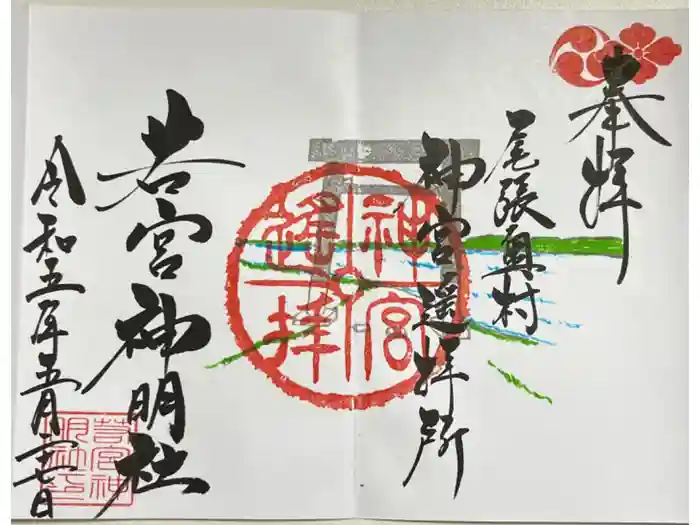 奉拝
尾張奥村
神宮遥拝所
神宮遥拝
若宮神明社
若宮神明社印
令和五年五月二十七日